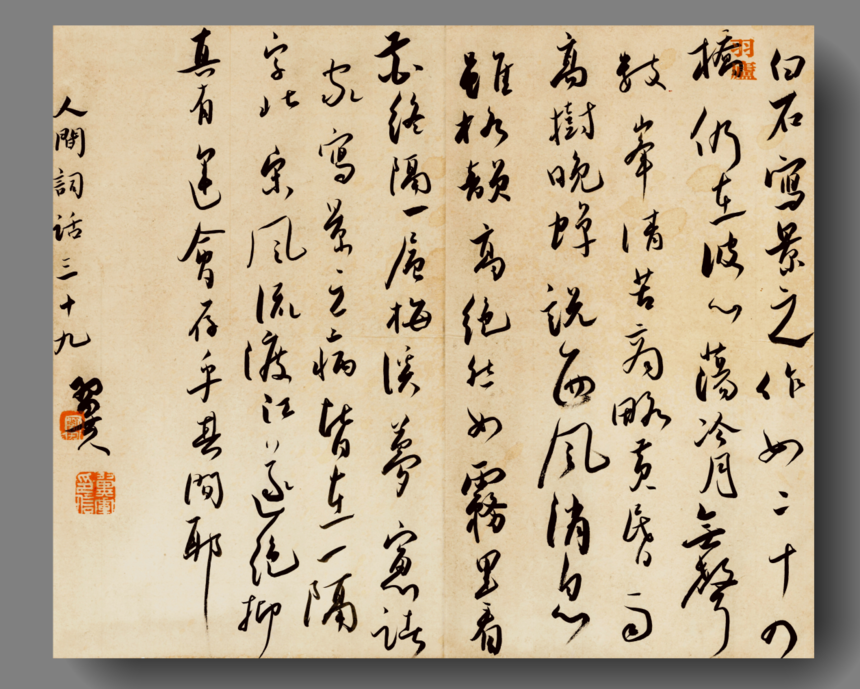 白石寫景之作如二十四
橋仍在波心蕩冷月無聲
數峯清苦商略黃昏雨
高樹晚蟬說西風消息
雖格韻高絕然如霧里看
花終隔一層梅溪夢窻諸
家寫景之病皆在一隔
字北宋風流渡江遂絕抑
真有運會存乎其間耶
人間詞話三十九